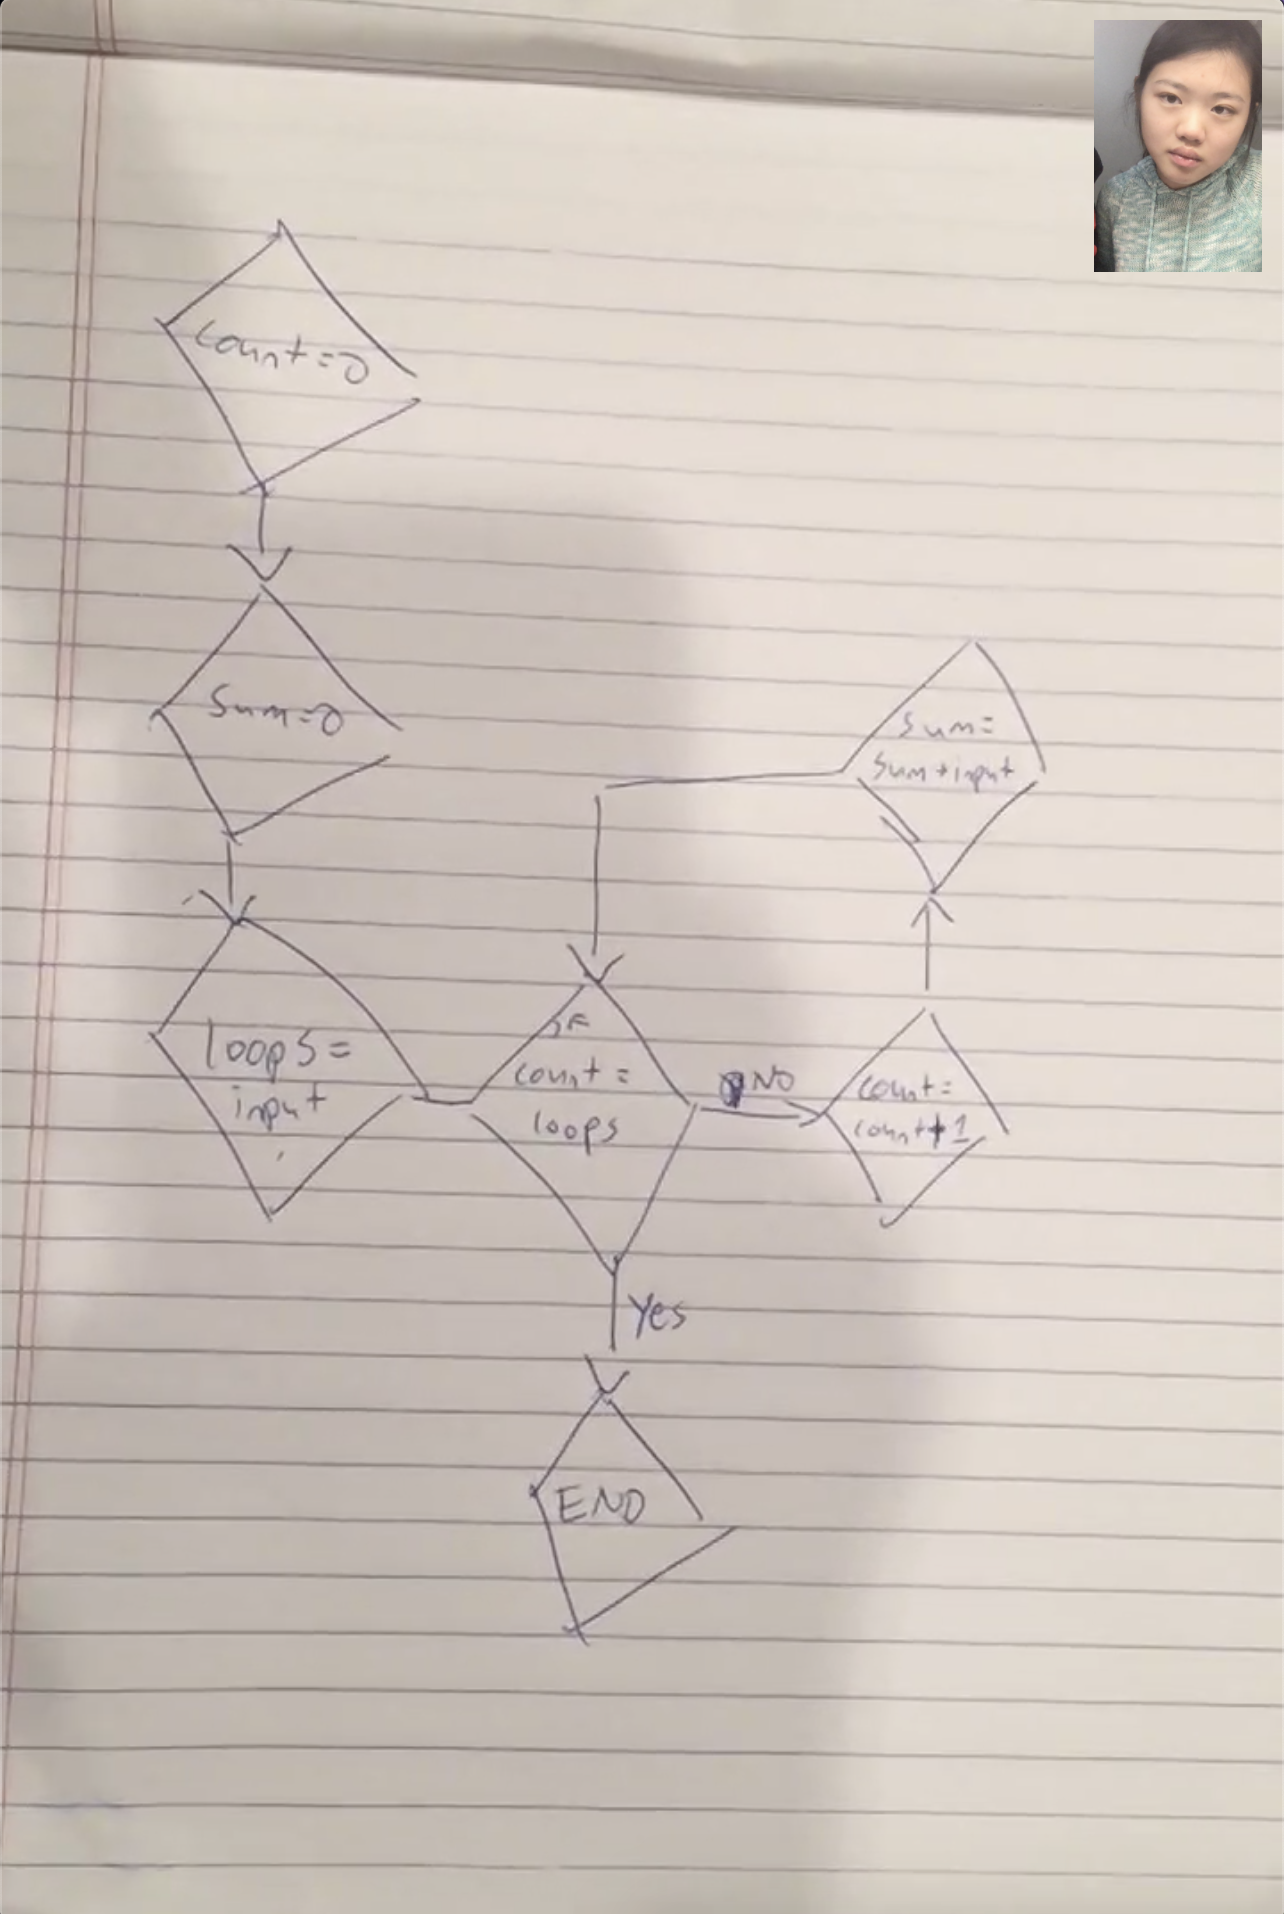 count=0
sum=0
loops=
input
if
count=
loops
NO
count=
count+1
sum=
sum+input
Yes
END